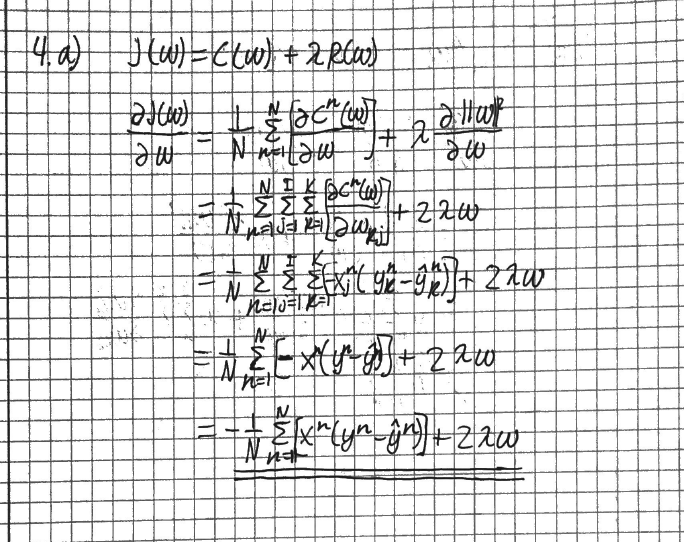 4. a) J(w) = C(w) + λR(w)
∂J(w)/∂w = 1/N Σ_{n=1}^{N} [∂C^n(w)/∂w] + λ ∂||w||²/∂w
= 1/N Σ_{n=1}^{N} Σ_{j=1}^{I} Σ_{k=1}^{K} [∂C^n(w)/∂w_{kj}] + 2λw
= 1/N Σ_{n=1}^{N} Σ_{j=1}^{I} Σ_{k=1}^{K} [-x_j^n(y_k^n - ŷ_k^n)] + 2λw
= 1/N Σ_{n=1}^{N} [- x^n(y^n - ŷ^n)] + 2λw
= -1/N Σ_{n=1}^{N} [x^n(y^n - ŷ^n)] + 2λw